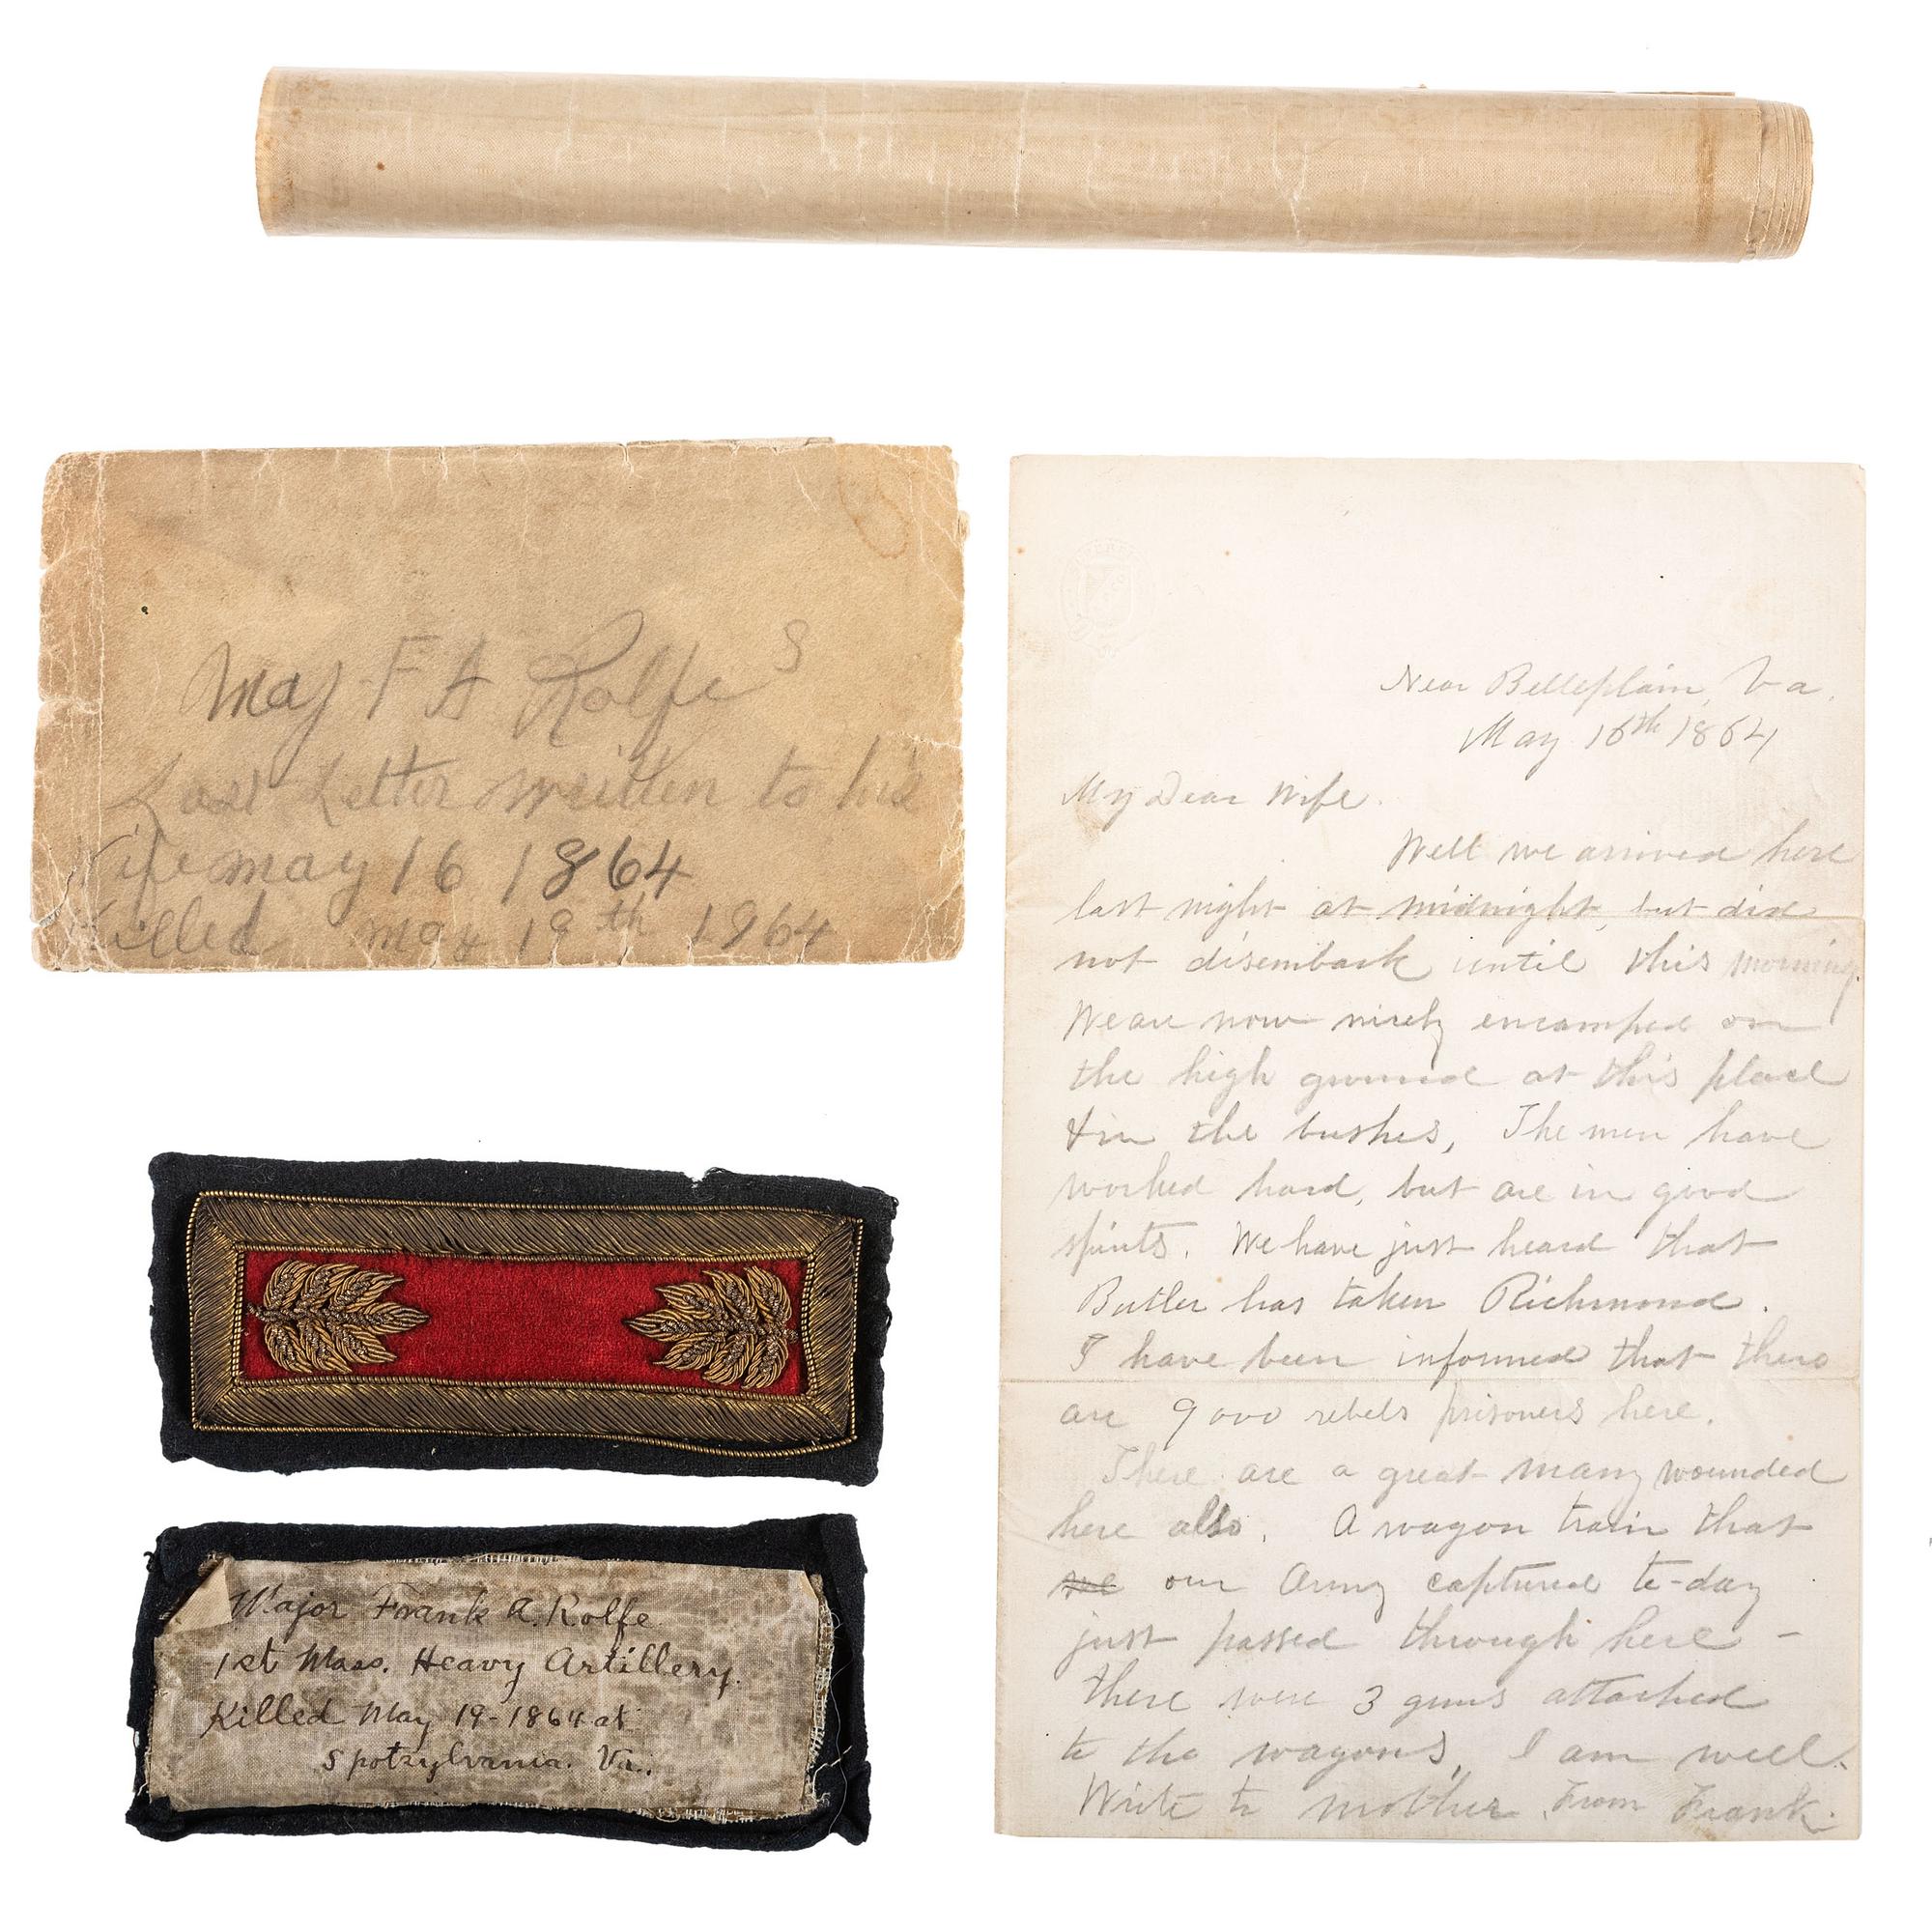 Maj F A Rolfe s
Last Letter written to his
ife may 16 1864
Killed May 19th 1864
Near Belleplain, Va.
May 16th 1864
My Dear Wife.
Well we arrived here
last night at midnight, but did
not disembark until this morning.
We are now nicely encamped on
the high ground at this place
& in the bushes, The men have
worked hard, but are in good
spirits. We have just heard that
Butler has taken Richmond.
I have been informed that there
are 9000 rebels prisoners here.
There are a great many wounded
here also. A wagon train that
we our Army captured to-day
just passed through here -
there were 3 guns attached
to the wagons, I am well.
Write to mother. From Frank.
Major Frank A. Rolfe
1st Mass. Heavy Artillery.
Killed May 19-1864 at
Spotzylvania. Va.